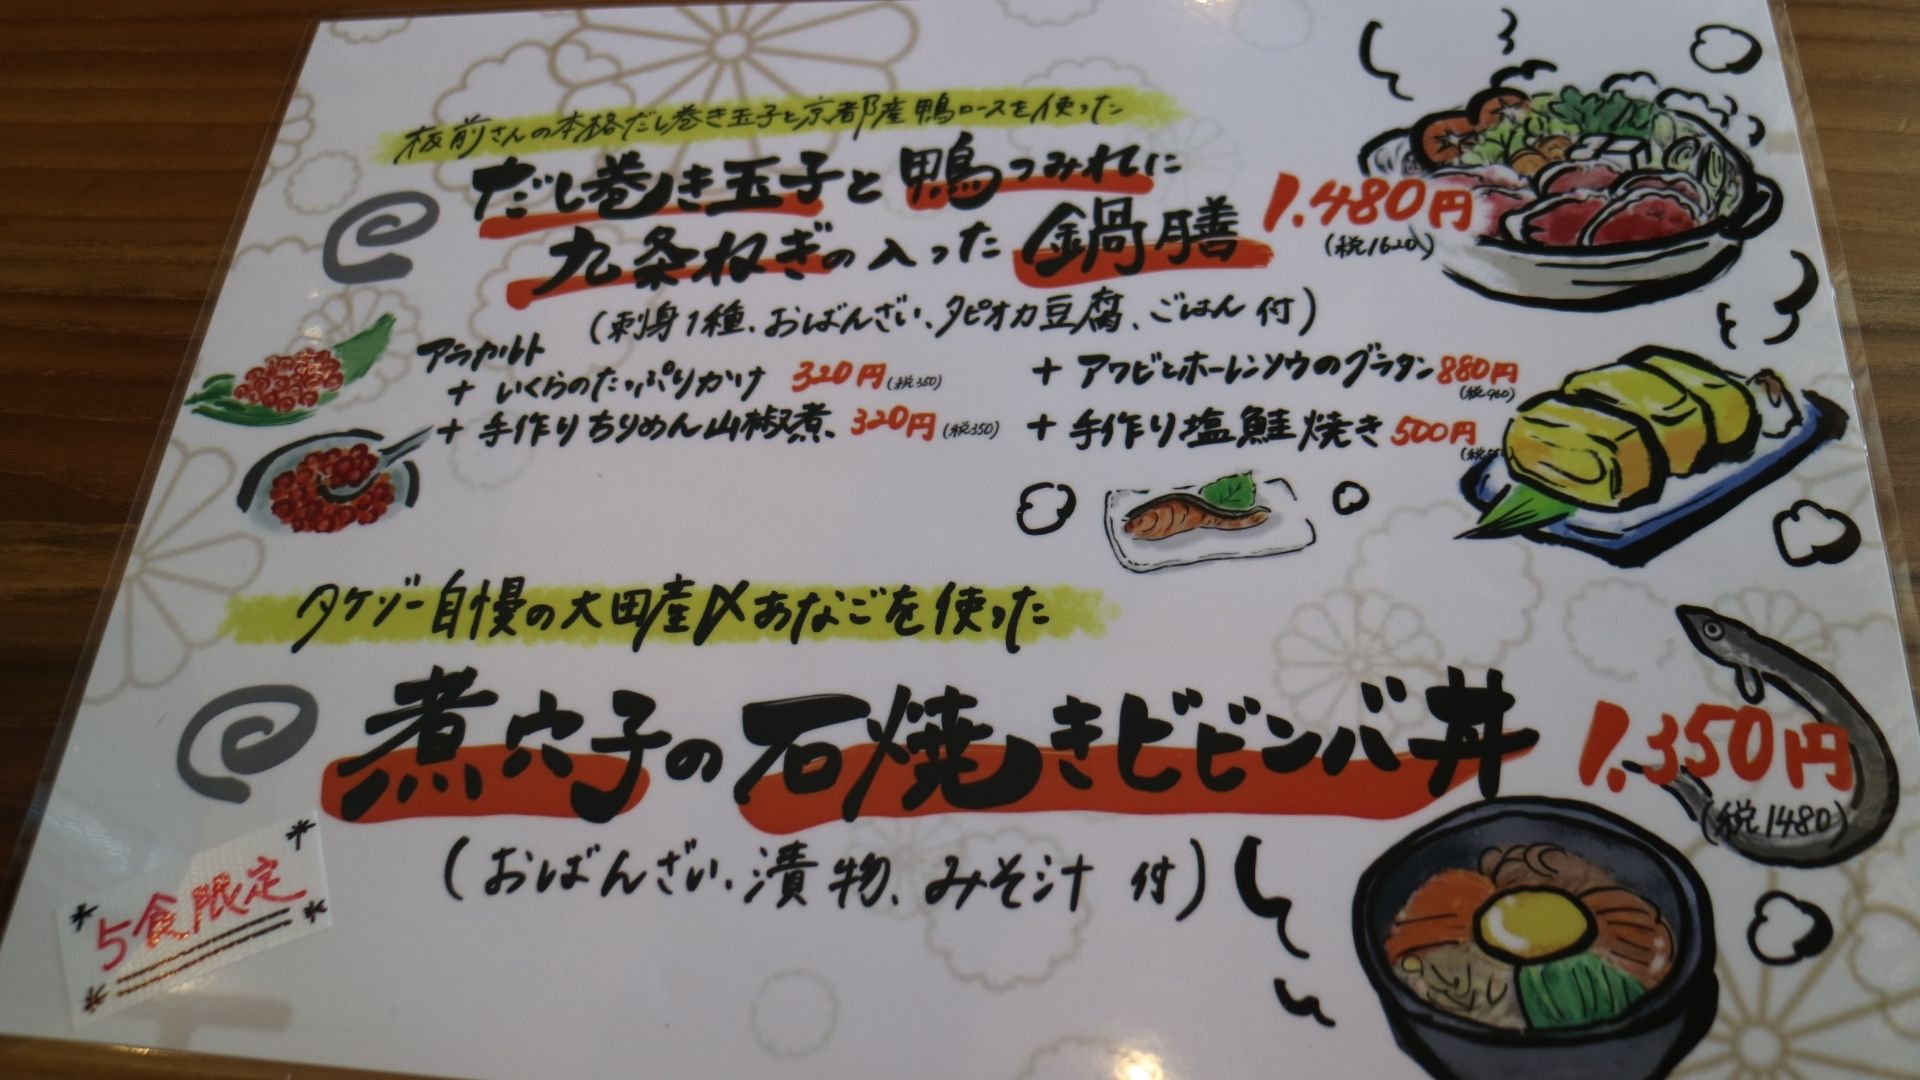 板前さんの本格だし巻き玉子と京都産鴨ロースを使った
だし巻き玉子と鴨つみれに
九条ねぎの入った鍋膳
1.480円
(税1620)
(刺身1種、おばんざい、タピオカ豆腐、ごはん付)
アラカルト
+ いくらのたっぷりかけ 320円(税350)
+ アワビとホーレンソウのグラタン880円
(税960)
+ 手作りちりめん山椒煮 320円(税350)
+ 手作り塩鮭焼き 500円
タケゾー自慢の大田産〆あなごを使った
煮穴子の石焼きビビンバ丼
1.350円
(税1480)
(おばんざい、漬物、みそ汁 付)
*5食限定*